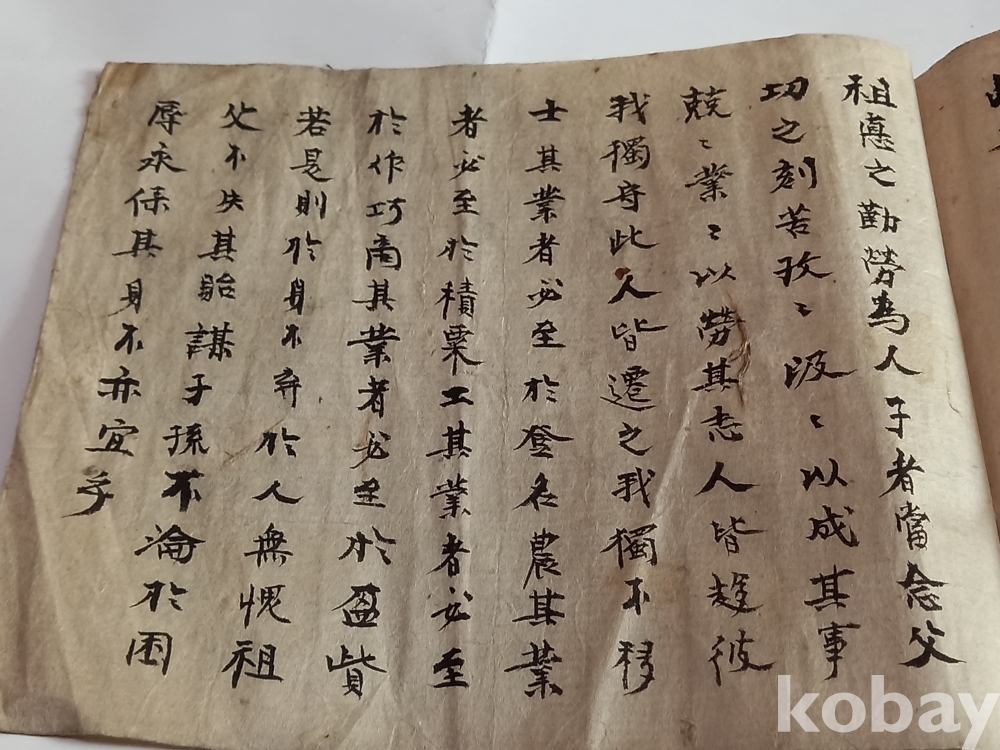 祖悳之勤勞為人子者當念父
功之刻苦孜〻汲〻以成其事
兢〻業〻以勞其志人皆趍彼
我獨守此人皆遷之我獨不移
士其業者必至於登名農其業
者必至於積粟工其業者必至
於作巧商其業者必至於盈貲
若是則於身不弃於人無愧祖
父不失其貽謀子孫不淪於困
辱永保其身不亦宜乎
kobay